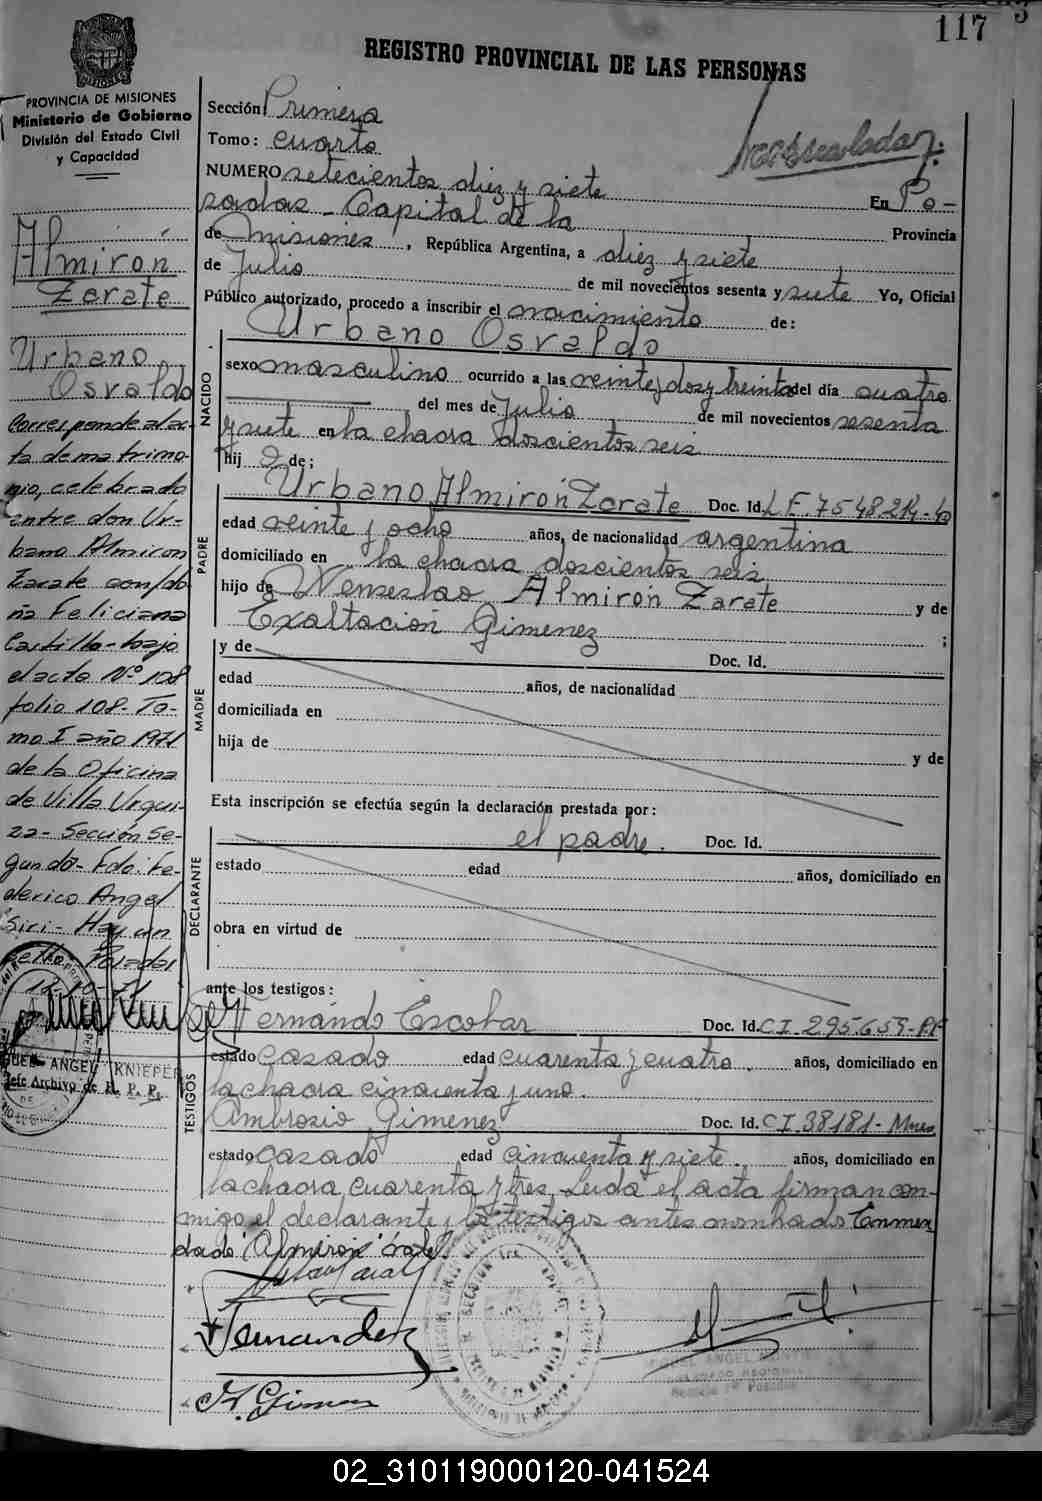 117
REGISTRO PROVINCIAL DE LAS PERSONAS
PROVINCIA DE MISIONES
Ministerio de Gobierno
División del Estado Civil
y Capacidad
Almirón
Zarate
Urbano
Osvaldo
Corresponde al ac-
ta de matrimo-
nio, celebrado
entre don Ur-
bano Almiron
Zarate con do-
ña Feliciana
Castillo- bajo
el acta Nº 108
folio 108- To-
mo I año 1971
de la Oficina
de Villa Urqui-
za- Sección Se-
gunda- Fdo: Fe-
derico Angel
Siri- Hay un
sello- Posadas
ANGEL KNIEPER
Jefe Archivo de R. P. P.
Sección Primera
Tomo: cuarto
NUMERO setecientos diez y siete En Po-
sadas - Capital de la Provincia
de Misiones, República Argentina, a diez y siete
de Julio de mil novecientos sesenta y siete Yo, Oficial
Público autorizado, procedo a inscribir el nacimiento de:
NACIDO
Urbano Osvaldo
sexo masculino ocurrido a las veinte y dos y treinta del día cuatro
del mes de Julio de mil novecientos sesenta
y siete en la chacra doscientos seis
hijo de;
PADRE
Urbano Almirón Zarate Doc. Id. L.E. 7548214-
edad veinte y ocho años, de nacionalidad argentina
domiciliado en la chacra doscientos seis
hijo de Wenseslao Almirón Zarate y de
Exaltación Gimenez ;
MADRE
y de Doc. Id.
edad años, de nacionalidad
domiciliada en
hija de y de
Esta inscripción se efectúa según la declaración prestada por:
DECLARANTE
el padre. Doc. Id.
estado edad años, domiciliado en
obra en virtud de
ante los testigos:
TESTIGOS
Fernándo Escobar Doc. Id. C.I. 295.659-
estado casado edad cuarenta y cuatro. años, domiciliado en
la chacra cincuenta y uno.
Ambrosio Gimenez Doc. Id. C.I. 38181- Mnes
estado casado edad cincuenta y siete. años, domiciliado en
la chacra cuarenta y tres. Leida el acta firman con-
migo el declarante y los testigos antes nombrado Enmen-
dado "Almiron"
02_310119000120-041524